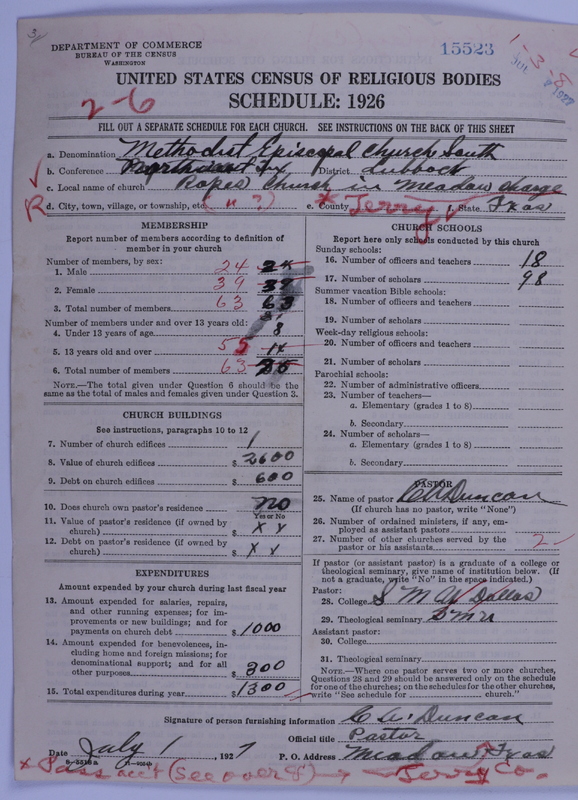 DEPARTMENT OF COMMERCE
BUREAU OF THE CENSUS
WASHINGTON
15523
1-3-8
UNITED STATES CENSUS OF RELIGIOUS BODIES
SCHEDULE: 1926
2-6
FILL OUT A SEPARATE SCHEDULE FOR EACH CHURCH. SEE INSTRUCTIONS ON THE BACK OF THIS SHEET
a. Denomination Methodist Episcopal Church South
b. Conference Northwest Tex District Lubbock
c. Local name of church Ropes Church in Meadow charge
R d. City, town, village, or township, etc. (" ?) e. County * Terry f. State Texas
MEMBERSHIP
Report number of members according to definition of
member in your church
Number of members, by sex:
1. Male 24 24
2. Female 39 39
3. Total number of members 63 63
Number of members under and over 13 years old:
4. Under 13 years of age 8
5. 13 years old and over 55 14
6. Total number of members 63
NOTE.—The total given under Question 6 should be the
same as the total of males and females given under Question 3.
CHURCH BUILDINGS
See instructions, paragraphs 10 to 12
7. Number of church edifices 1
8. Value of church edifices $ 2600
9. Debt on church edifices $ 600
10. Does church own pastor's residence no
Yes or No
11. Value of pastor's residence (if owned by
church) $ x x
12. Debt on pastor's residence (if owned by
church) $ x x
EXPENDITURES
Amount expended by your church during last fiscal year
13. Amount expended for salaries, repairs,
and other running expenses; for im-
provements or new buildings; and for
payments on church debt $ 1000
14. Amount expended for benevolences, in-
cluding home and foreign missions; for
denominational support; and for all
other purposes $ 300
15. Total expenditures during year $ 1300
CHURCH SCHOOLS
Report here only schools conducted by this church
Sunday schools:
16. Number of officers and teachers 18
17. Number of scholars 98
Summer vacation Bible schools:
18. Number of officers and teachers
19. Number of scholars
Week-day religious schools:
20. Number of officers and teachers
21. Number of scholars
Parochial schools:
22. Number of administrative officers
23. Number of teachers—
a. Elementary (grades 1 to 8)
b. Secondary
24. Number of scholars—
a. Elementary (grades 1 to 8)
b. Secondary
PASTOR
25. Name of pastor C A Duncan
(If church has no pastor, write "None")
26. Number of ordained ministers, if any, em-
ployed as assistant pastors
27. Number of other churches served by the
pastor or his assistants 2
If pastor (or assistant pastor) is a graduate of a college or
theological seminary, give name of institution below. (If
not a graduate, write "No" in the space indicated.)
Pastor:
28. College S M U Dallas
29. Theological seminary S m u
Assistant pastor:
30. College
31. Theological seminary
NOTE.—Where one pastor serves two or more churches,
Questions 28 and 29 should be answered only on the schedule
for one of the churches; on the schedules for the other churches,
write "See schedule for church."
Signature of person furnishing information C A Duncan
Official title Pastor
Date July 1 1927 P. O. Address Meadow Texas
Terry Co.